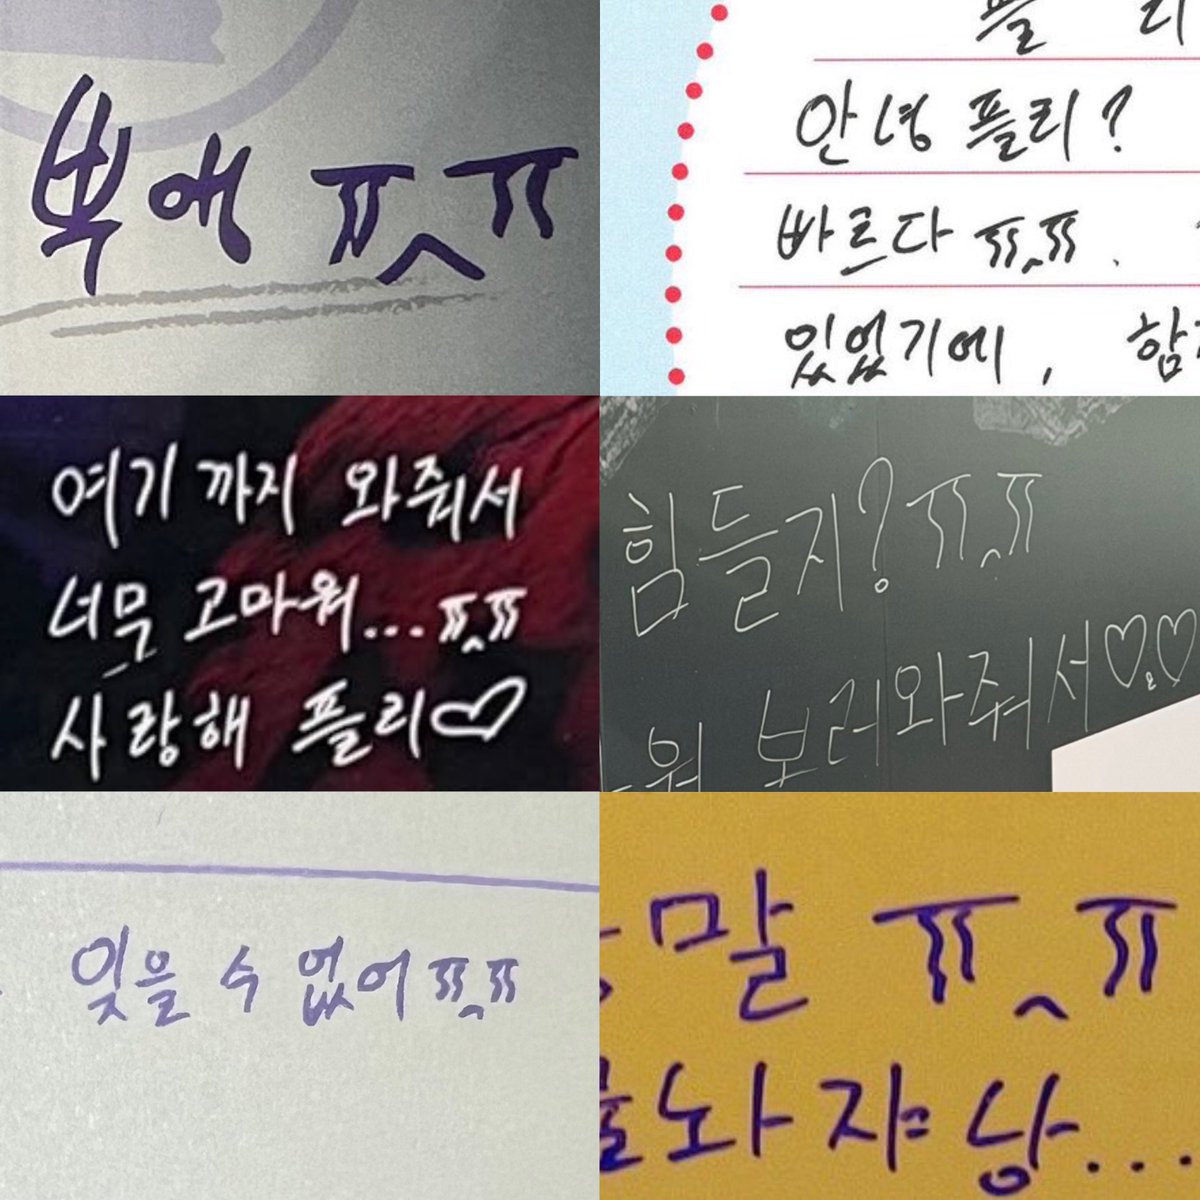 뽁애 ㅠ^ㅠ
플리
안녕 플리?
바르다 ㅠ^ㅠ.
있었기에, 함
여기까지 와줘서
너무 고마워...ㅠ^ㅠ
사랑해 플리♡
힘들지? ㅠ^ㅠ
워 보러와줘서♡.♡
잊을 수 없어 ㅠ^ㅠ
말 ㅠ^ㅠ
놔쟈냥...